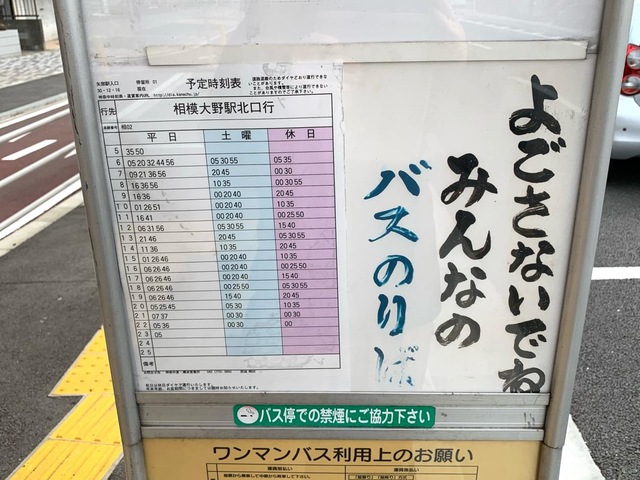 矢部駅入口 停留所 01
30・12・16 現在
予定時刻表
行先 相模大野駅北口行
相02
平日 土曜 休日
5 35 50
6 05 20 32 44 56 05 30 55 05 35
7 09 21 36 56 20 45 00 30
8 16 36 56 10 35 00 20 40
9 16 36 00 20 40 00 20 40
10 01 26 51 00 20 40 00 20 40
11 16 41 00 20 40 00 25 50
12 06 31 56 05 30 55 15 40
13 21 46 20 45 05 30 55
14 11 36 10 35 20 45
15 01 26 46 00 20 40 10 35
16 06 26 46 00 20 40 00 25 50
17 06 26 46 00 20 40 15 40
18 06 26 46 00 25 50 00 20 40
19 06 26 45 15 40 20 45
20 05 25 45 05 30 55 10 35
21 07 37 00 30 00 30
22 05 36 00 30 00
23 05
24
25
備考
よごさないでね
みんなの
バスのりば
バス停での禁煙にご協力下さい
ワンマンバス利用上のお願い